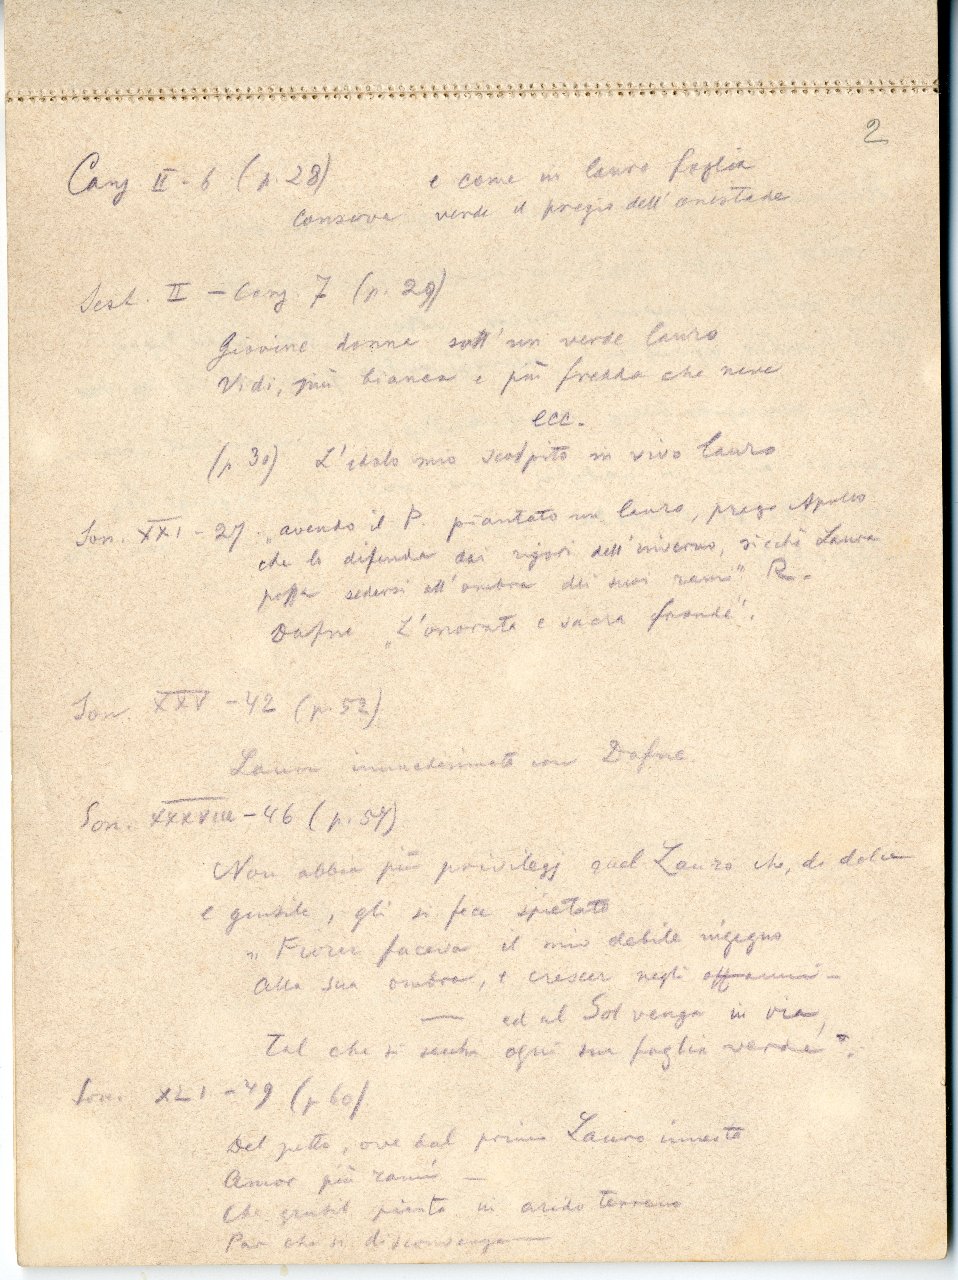 2
Canz II - 6 (p. 28) e come in lauro foglia
Conserva verde il pregio dell'onestade
Sest. II - Canz. 7 (p. 29)
Giovine donna sott'un verde lauro
Vidi, più bianca e più fredda che neve
ecc.
(p. 30) L'idolo mio scolpito in vivo lauro
Son. XXI - 27. „avendo il P. piantato un lauro, prega Apollo
che lo difenda dai rigori dell'inverno, sicché Laura
possa sedersi all'ombra dei suoi rami" R.
Dafne „L'onorata e sacra fronde".
Son. XXV - 42 (p. 52)
Laura immedesimata con Dafne.
Son. XXXVIII - 46 (p. 57)
Non abbia più privilegj quel Lauro che, da dolce
e gentile, gli si fece spietato
„ Fiorir faceva il mio debile ingegno
Alla sua ombra, e crescer negli affanni —
— ed al Sol venga in via,
Tal che si secchi ogni sua foglia verde".
Son. XLI - 49 (p 60)
Del petto, ove dal primo Lauro innesta
Amor più rami —
Che gentil pianta in arido terreno
Par che si disconvenga —